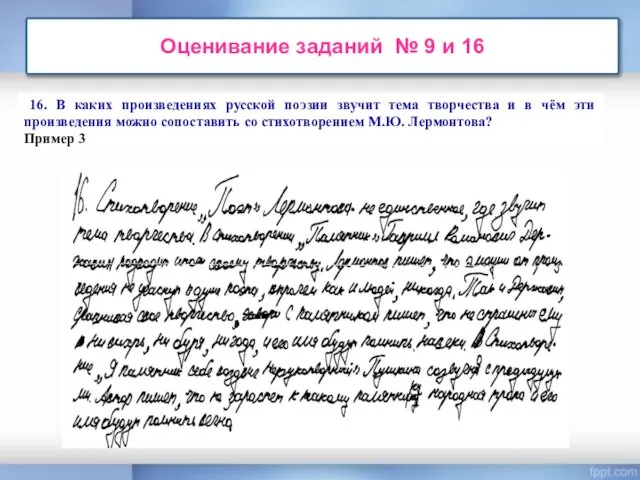 Оценивание заданий № 9 и 16
16. В каких произведениях русской поэзии звучит тема творчества и в чём эти
произведения можно сопоставить со стихотворением М.Ю. Лермонтова?
Пример 3
16. Стихотворение „Поэт" Лермонтова не единственное, где звучит
тема творчества. В стихотворении „Памятник" Гавриил Романович Дер-
жавин подводит итог своему творчеству. Лермонтов пишет, что эмоции от произ
ведения не угаснут в душе поэта, впрочем как и людей, никогда. Так и Державин,
сравнивая свое творчество с памятником пишет, что не страшен ему
ни вихрь, ни буря, ни года, и его имя будут помнить на веки. В Стихотворе-
ние „Я памятник себе воздвиг нерукотворный" Пушкина созвучен с предыдущи
ми. Автор пишет, что не зарастет к такому памятнику народная тропа и его
имя будут помнить вечно
fppt.com